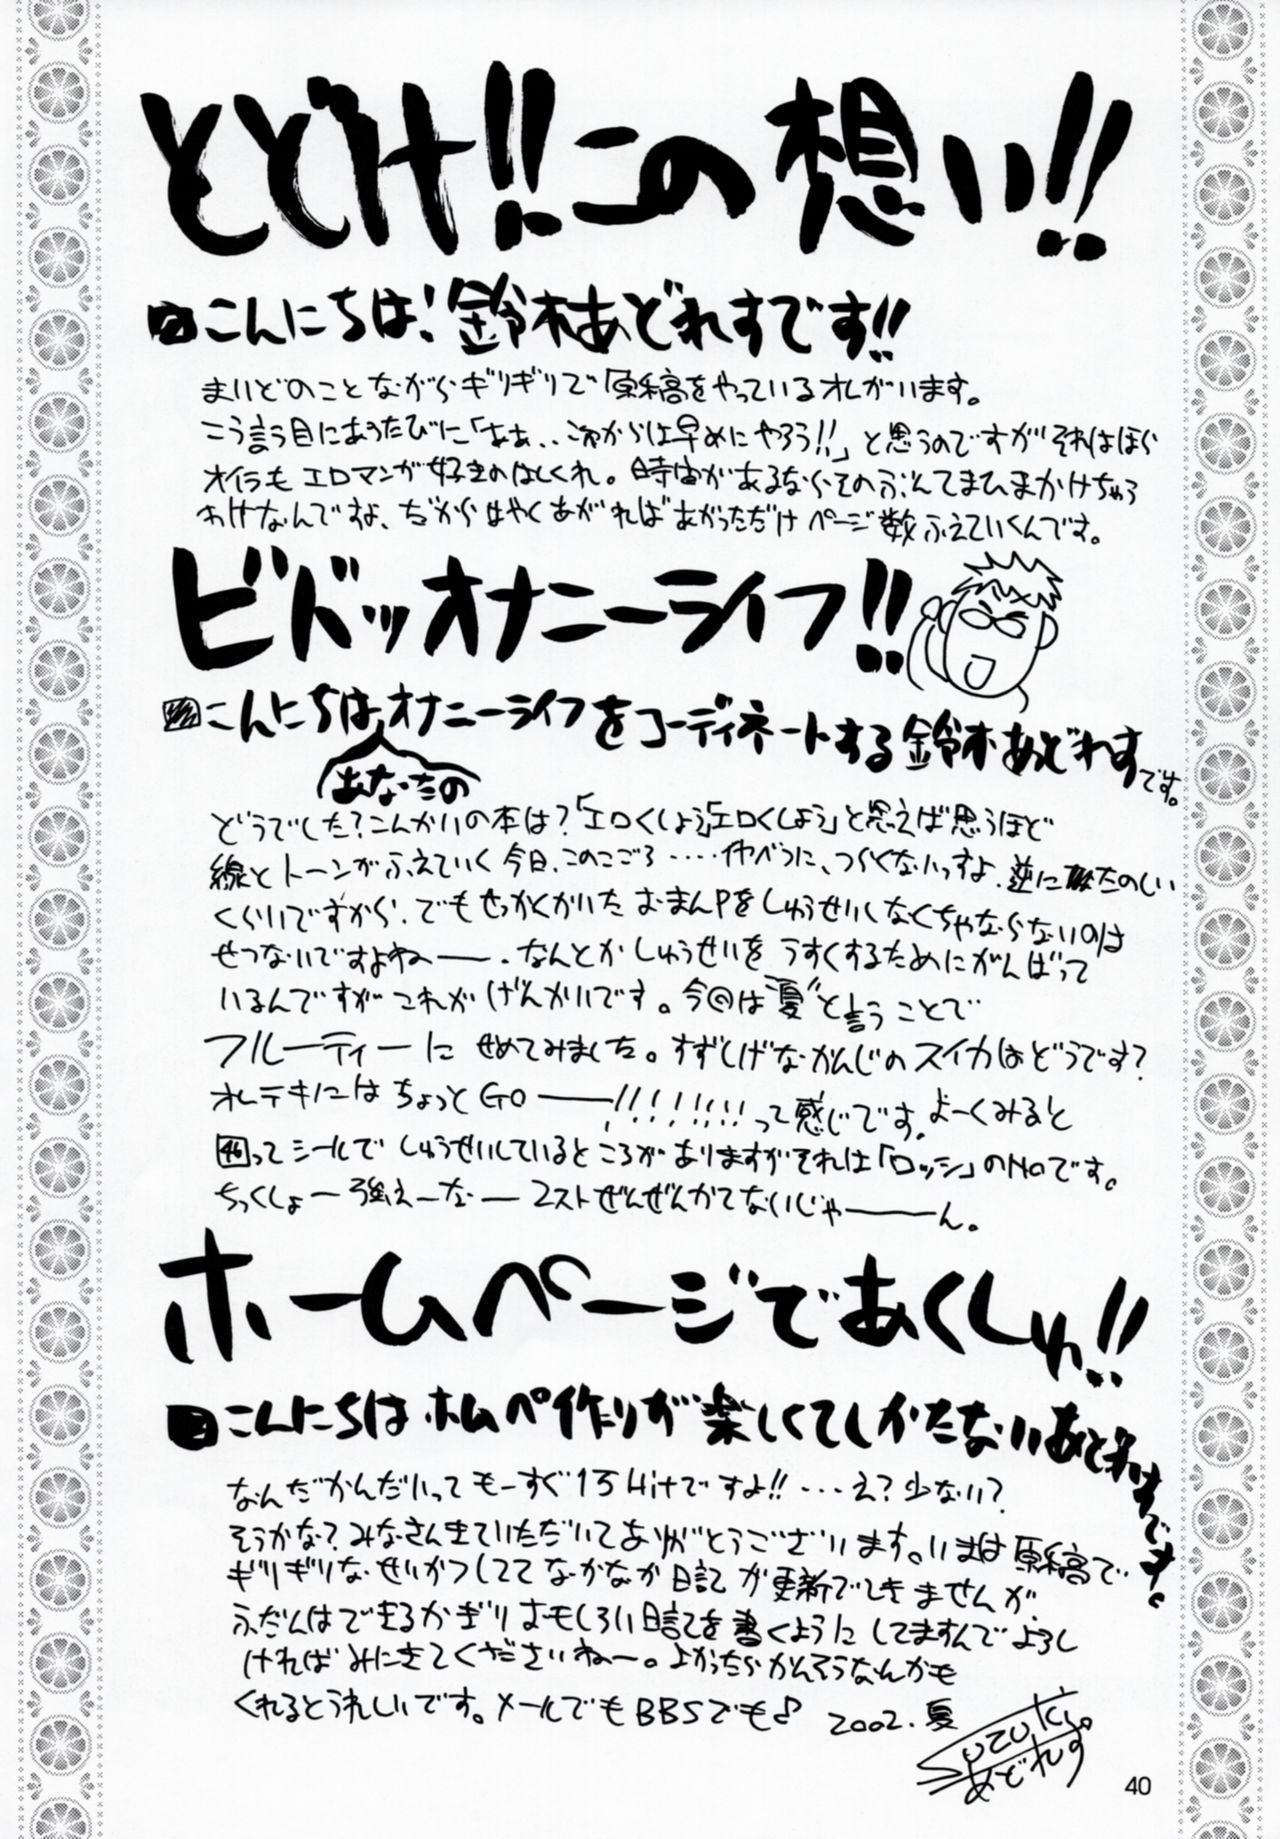 とどけ!!この想い!!
こんにちは!鈴木あどれすです!!
まいどのことながらギリギリで原稿をやっているオレがいます。
こう言う目にあうたびに「ああ、、これからは早めにやろう!!」と思うのですがそれはほら
オイラもエロマンガ好きのはしくれ。時間があるならそのぶんてまひまかけちゃう
わけなんですよ、だからはやくあがればあがっただけページ数ふえていくんです。
ビドッオナニーライフ!!
こんにちはオナニーライフをコーディネートする鈴木あどれすです。
あなたの
どうでした?こんかいの本は?「エロくしよう」「エロくしよう」と思えば思うほど
線とトーンがふえていく今日、このごろ‥‥‥べつに、つらくないっすよ、逆にたのしい
くらいですから、でもせっかくかいたおまんPをしゅうせいしなくちゃならないのは
せつないですよねー。なんとかしゅうせいをうすくするためにがんばって
いるんですがこれがげんかいです。今回は"夏"と言うことで
フルーティーにせめてみました。すずしげなかんじのスイカはどうです?
オレテキにはちょっとGOー!!!!!!!!って感じです。よーくみると
46ってシールでしゅうせいしているところがありますがそれは「ロッシ」のNoです。
ちっくしょー強えーなー2ストぜんぜんかてないじゃーん。
ホームページであくしゅ!!
こんにちはホムペ作りが楽しくてしかたないあどれすです。
なんだかんだいってもーすぐ15Hitですよ!!‥‥え?少ない?
そうかな?みなさんきていただいてありがとうございます。いまは原稿で
ギリギリなせいかつしててなかなか日記が更新できませんが
ふだんはできるかぎりおもしろい日記を書くようにしてますんでよろし
ければみにきてくださいねー。よかったらかんそうなんかも
くれるとうれしいです。メールでもBBSでも♪ 2002.夏
Suzuki
あどれす
40